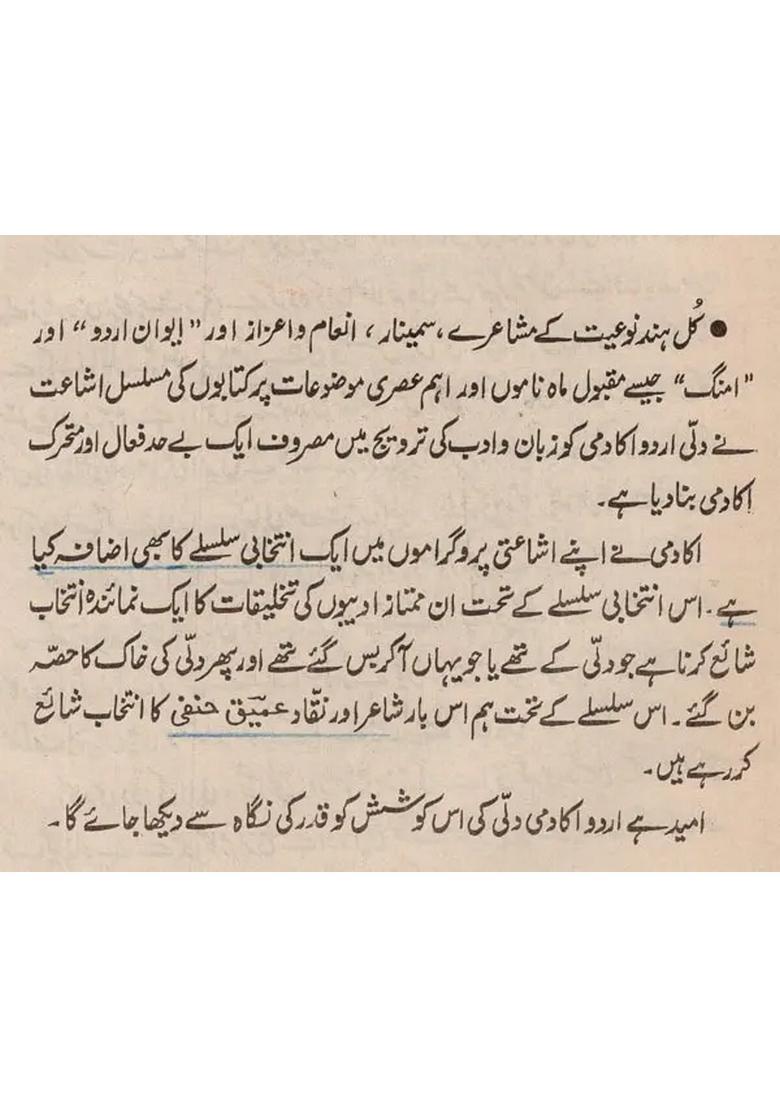 ● کُل ہند نوعیت کے مشاعرے، سمینار، انعام و اعزاز اور "ایوان اردو" اور
"امنگ" جیسے مقبول ماہ ناموں اور اہم عصری موضوعات پر کتابوں کی مسلسل اشاعت
نے دلّی اردو اکادمی کو زبان و ادب کی ترویج میں مصروف ایک بے حد فعال اور متحرک
اکادمی بنا دیا ہے۔
اکادمی نے اپنے اشاعتی پروگراموں میں ایک انتخابی سلسلے کا بھی اضافہ کیا
ہے۔ اس انتخابی سلسلے کے تحت ان ممتاز ادیبوں کی تخلیقات کا ایک نمائندہ انتخاب
شائع کرنا ہے جو دلّی کے تھے یا جو یہاں آکر بس گئے تھے اور پھر دلّی کی خاک کا حصّہ
بن گئے۔ اس سلسلے کے تحت ہم اس بار شاعر اور نقّاد عمیق حنفی کا انتخاب شائع
کر رہے ہیں۔
امید ہے اردو اکادمی دلّی کی اس کوشش کو قدر کی نگاہ سے دیکھا جائے گا۔